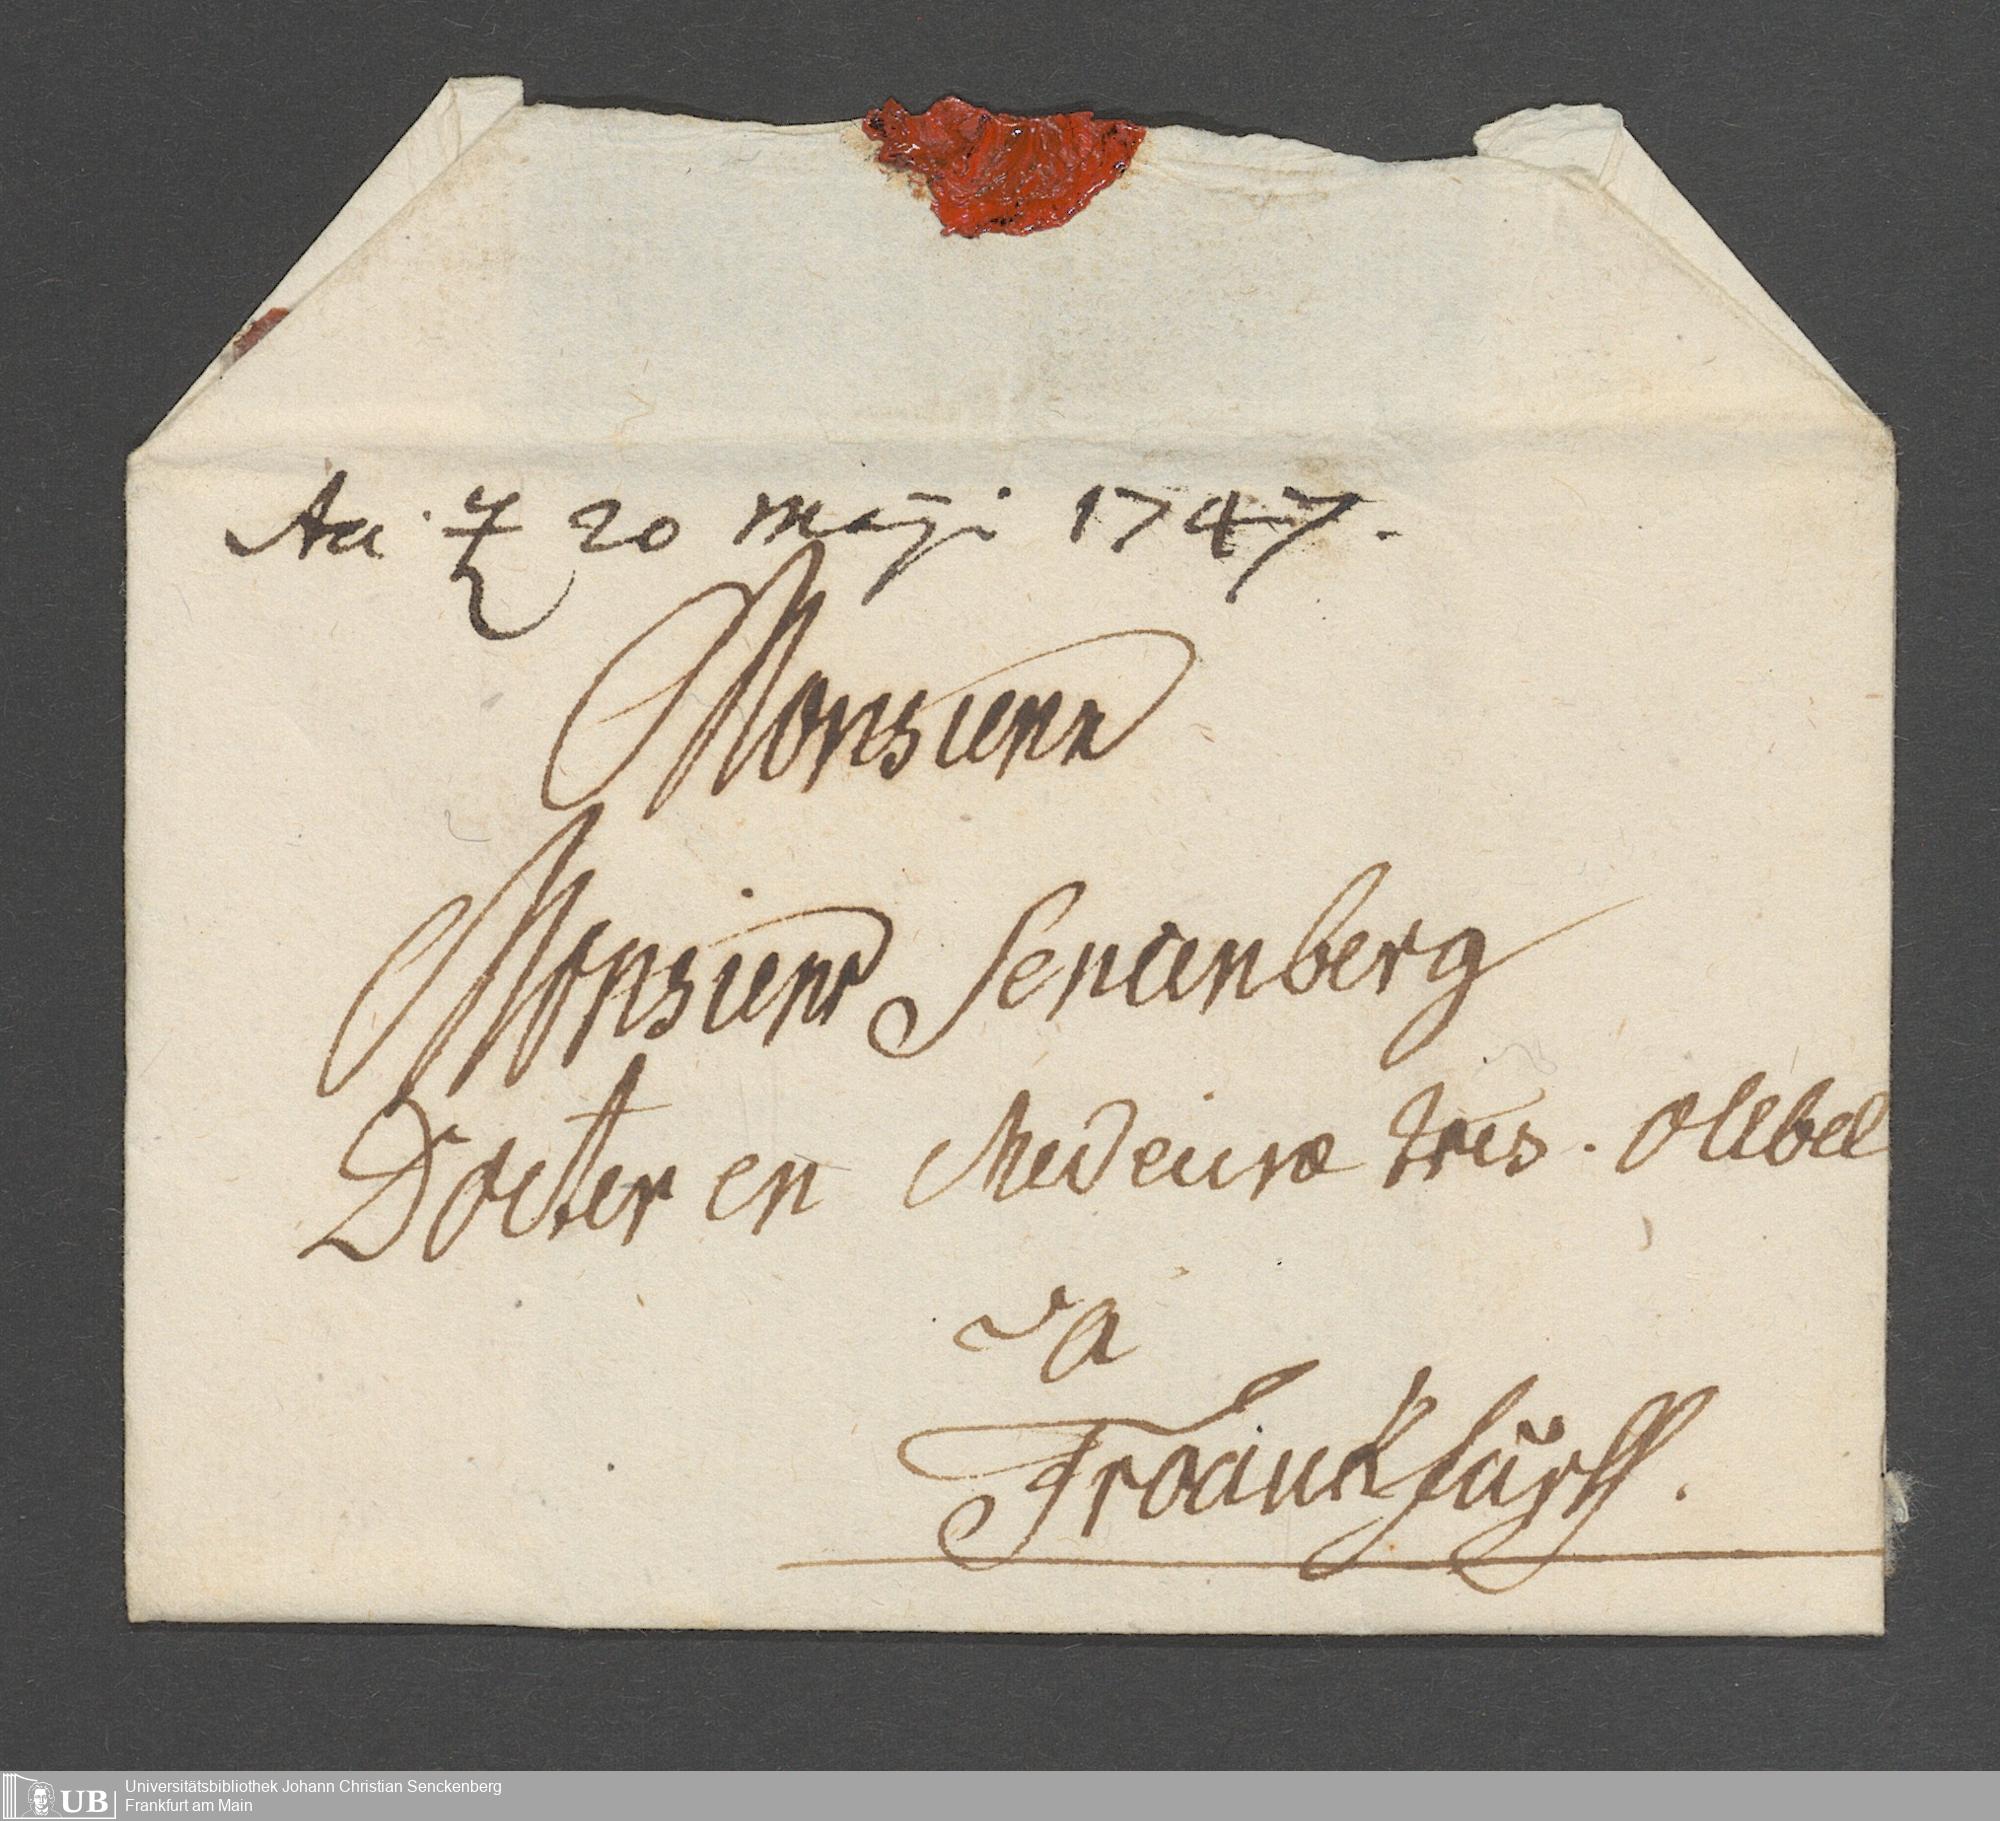 20 Maji 1747.
Monsieur
Monsieur Senckenberg
Docter en Medecinæ tres.
a
Franckfurth.
UB Universitätsbibliothek Johann Christian Senckenberg
Frankfurt am Main